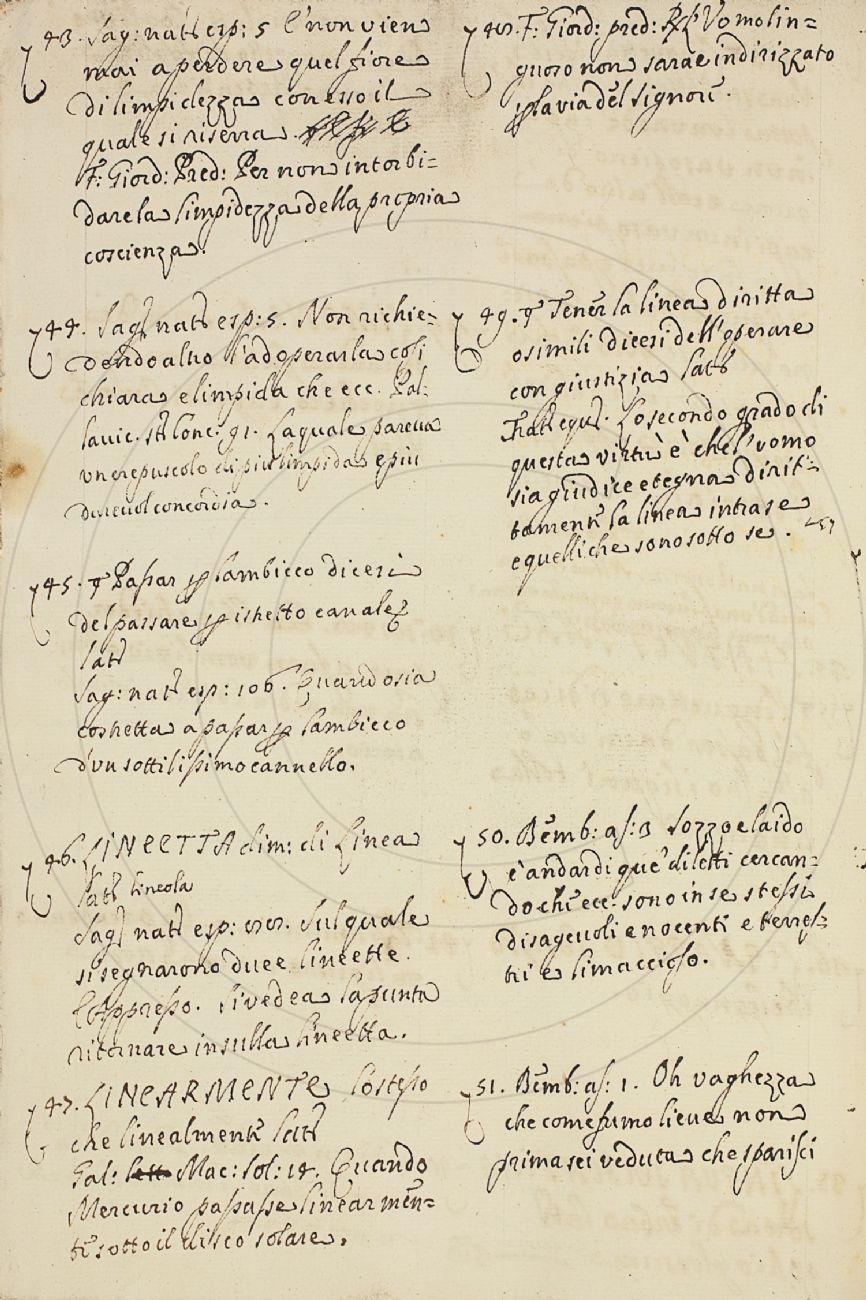 43. Sag: nat: esp: 5 E non vien
mai a perdere quel fiore
di limpidezza con esso il
quale si riserra.
F: Giord: Pred: Per non intorbi=
dare la limpidezza della propria
coscienza.
44. Sag: nat: esp: 5. Non richie=
dendo altro l'adoperarla così
chiara e limpida che ecc. Pal=
lavic. st: Conc: 91. La quale pareva
un crepuscolo di più limpida e più
durevol concordia.
45. Passar p lambicco dicesi
del passare p istretto canale
lat:
Sag: nat: esp: 106. Quando sia
costretta a passar p lambicco
d'un sottilissimo cannello.
46. LINEETTA dim: di Linea
lat: lineola
Sag: nat: esp: Sul quale
si segnarono due lineette.
E appresso. Si vedea la punta
ritornare in sulla lineetta.
47. LINEARMENTE Lo stesso
che linealmente lat:
Gal: Mac: Sol: 14. Quando
Mercurio passasse linearmen=
te sotto il disco solare.
48. F: Giord: pred: L'Uomo lin=
guoso non sarae indirizzato
p la via del Signore.
49. Tener la linea diritta
o simili dicesi dell'operare
con giustizia lat:
Trat: equs. Lo secondo grado di
questa virtù è che l'uomo
sia giudice e tegna dirit=
tamente la linea intra se
e quelli che sono sotto se.
50. Bemb: as: 3 Sozzo e laido
è andar di que' diletti cercan=
do chi ecc. sono in se stessi
disagevoli e nocenti e terres=
tri e limacciosо.
51. Bemb: as: 1. Oh vaghezza
che come fumo lieve non
prima sei veduta che sparisci